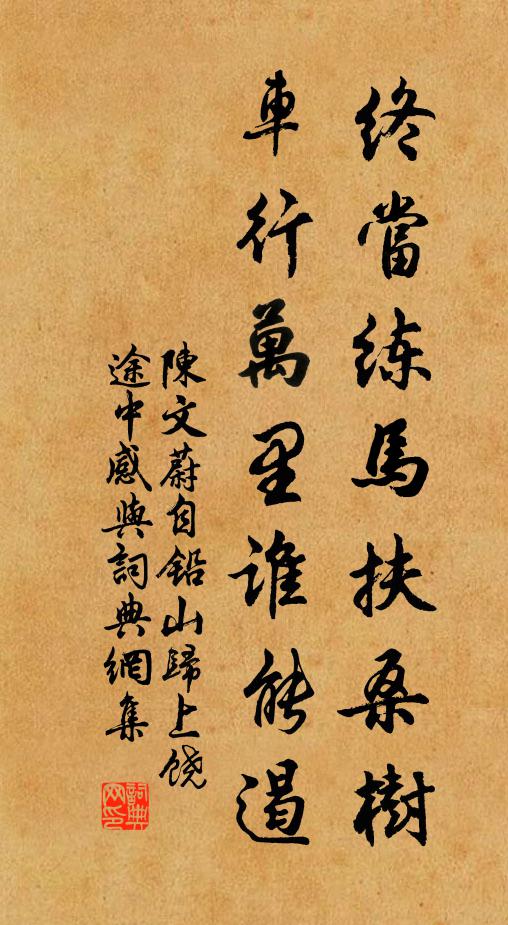 終當練馬扶桑樹
車行萬里誰能遏
陳文蔚自鉛山歸上饒
途中感興詞典網集
詞典網印